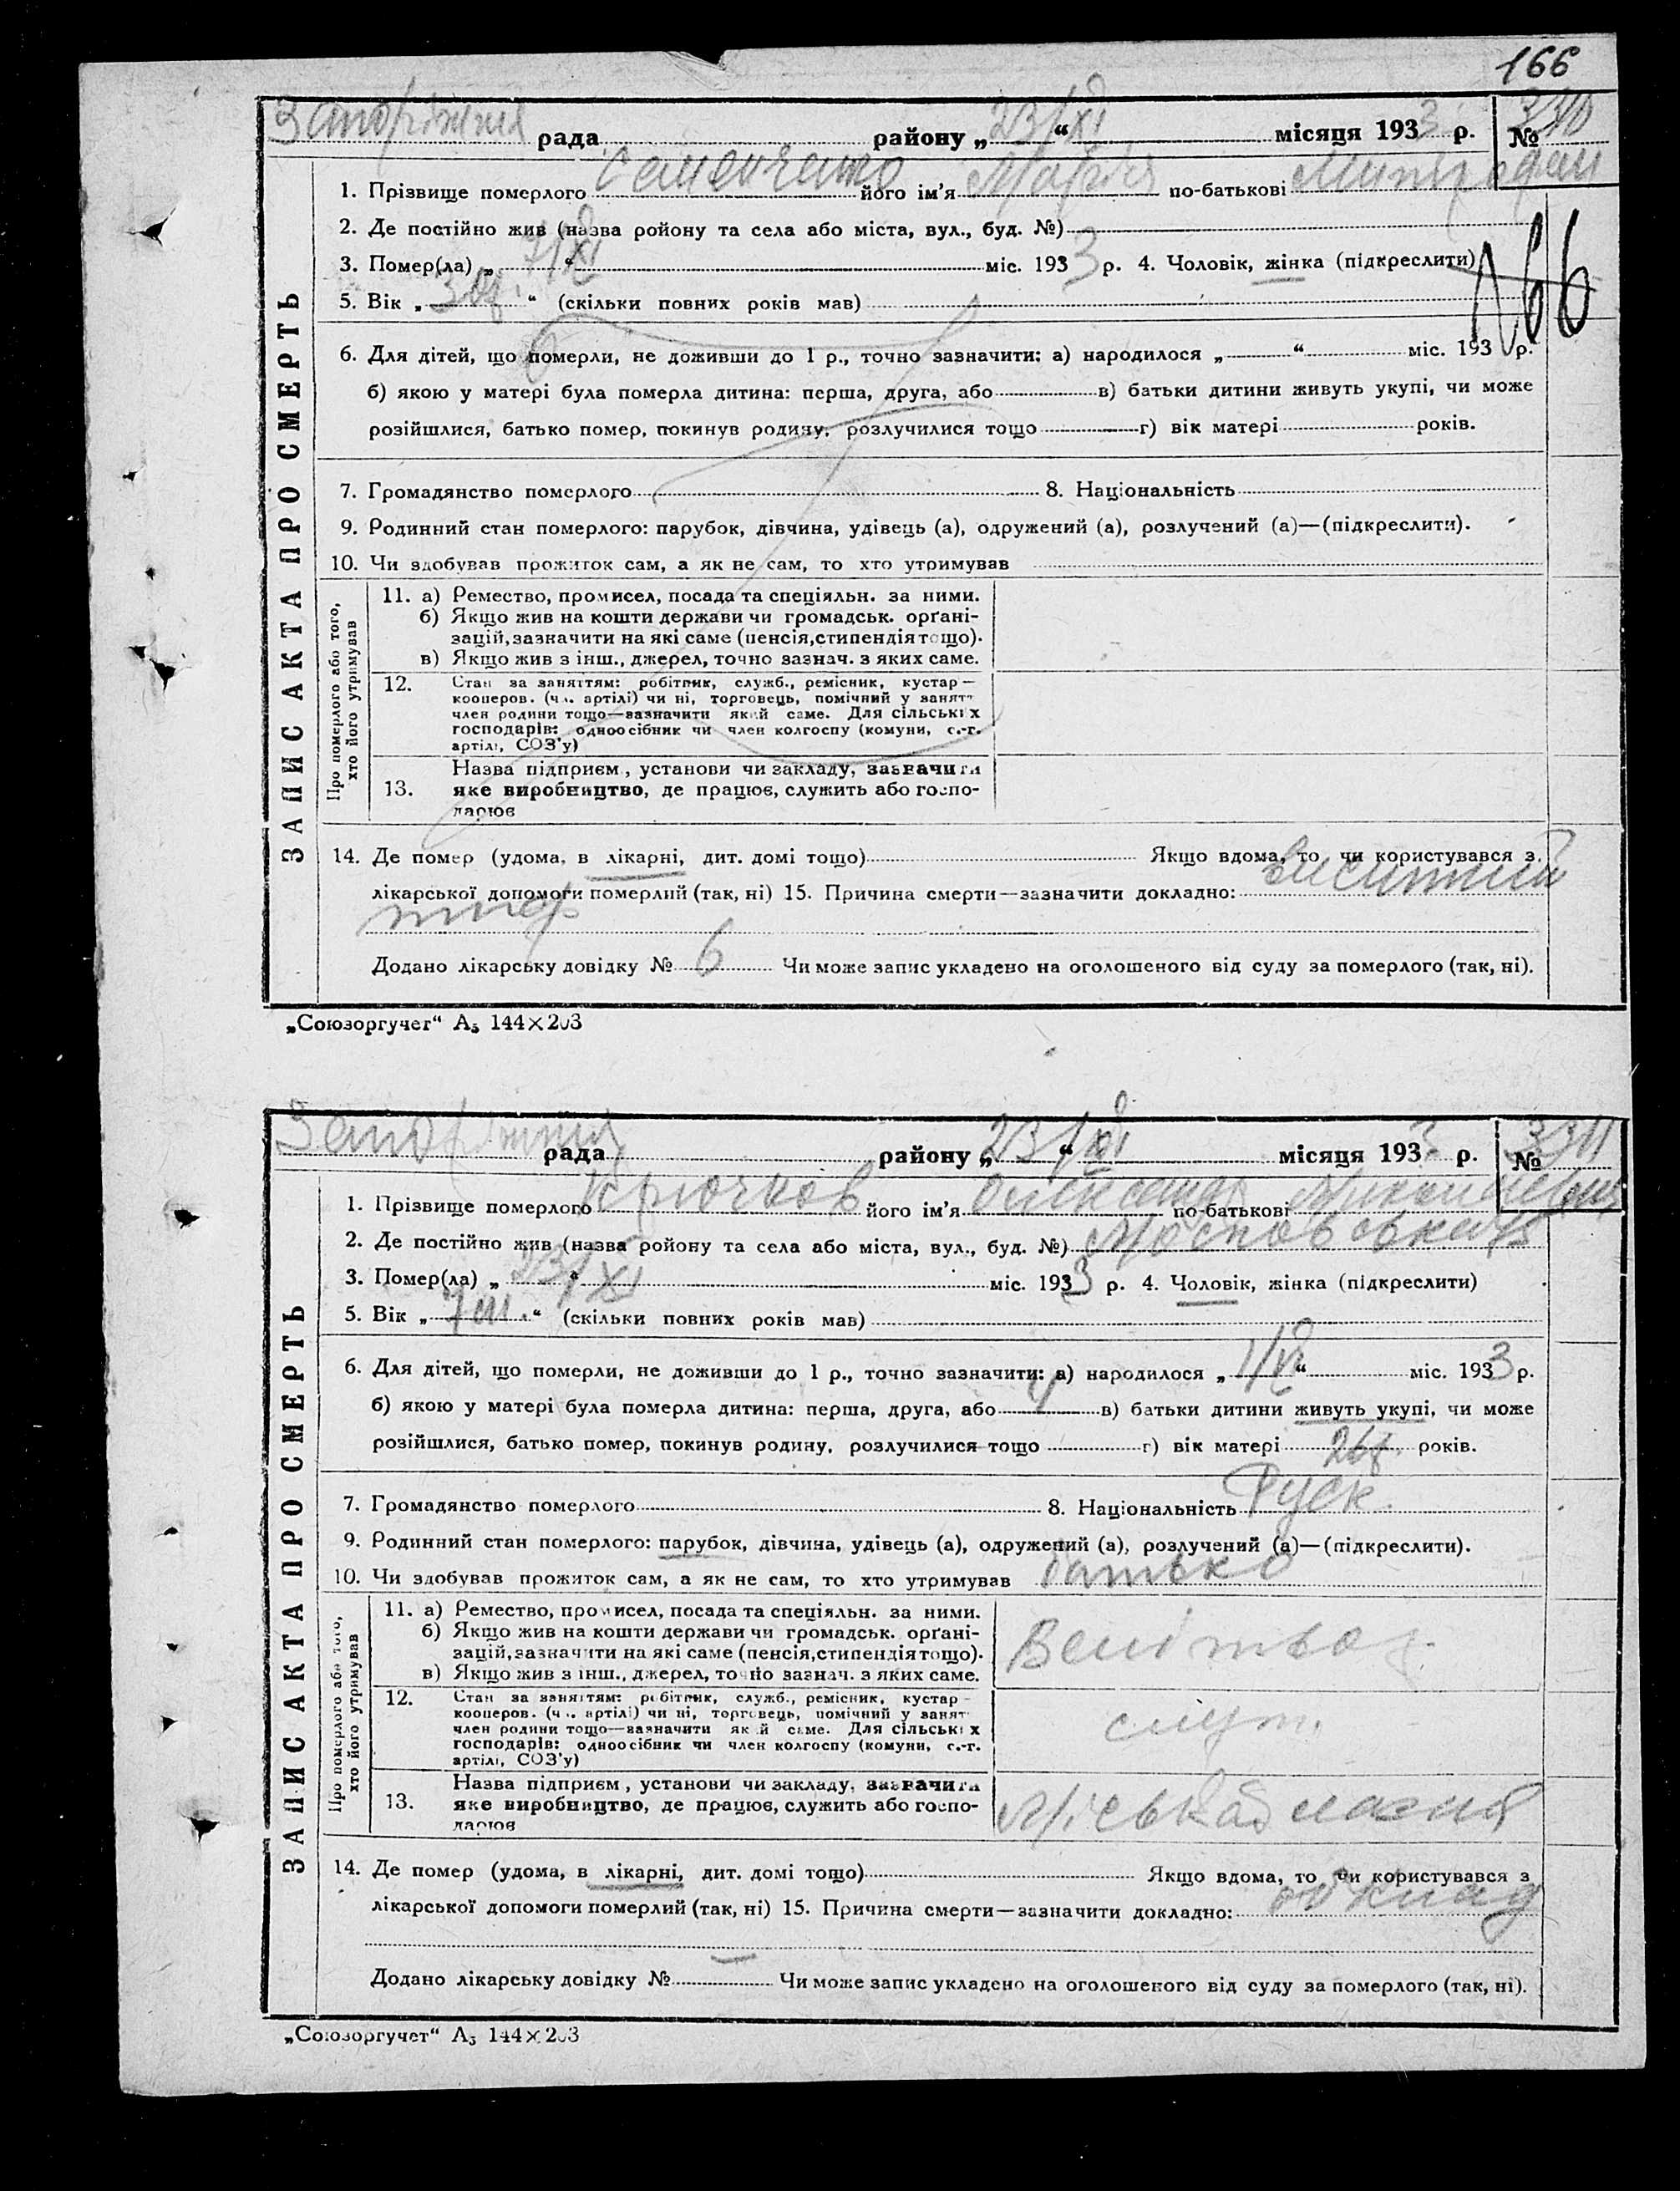 166
Запоріжжя рада района „ 23/XI “ місяця 1933 р. № 3310
ЗАПИС АКТА ПРО СМЕРТЬ
1. Прізвище померлого Семенченко його ім'я Марія по-батькові
2. Де постійно жив (назва ройону та села або міста, вул., буд. №)
3. Помер(ла) „ 7/XI “ міс. 1933 р. 4. Чоловік, жінка (підкреслити)
№6
5. Вік „ 30р. “ (скільки повних років мав)
6. Для дітей, що померли, не доживши до 1 р., точно зазначити: а) народилося „ “ міс. 193 р.
б) якою у матері була померла дитина: перша, друга, або в) батьки дитини живуть укупі, чи може
розійшлися, батько помер, покинув родину, розлучилися тощо г) вік матері років.
7. Громадянство померлого 8. Національність
9. Родинний стан померлого: парубок, дівчина, удівець (а), одружений (а), розлучений (а)—(підкреслити).
10. Чи здобував прожиток сам, а як не сам, то хто утримував
Про померлого або того, хто його утримував
11. а) Ремество, промисел, посада та спеціяльн. за ними.
б) Якщо жив на кошти держави чи громадськ. орґані-
зацій, зазначити на які саме (пенсія, стипендія тощо).
в) Якщо жив з інш., джерел, точно зазнач. з яких саме.
12. Стан за заняттям: робітник, служб., ремісник, кустар—
кооперов. (чл. артілі) чи ні, торговець, помічний у занятт
член родини тощо—зазначити який саме. Для сільських
господарів: одноосібник чи член колгоспу (комуни, с.-г.
артілі, СОЗ'у)
13. Назва підприєм., установи чи закладу, зазначити
яке виробництво, де працює, служить або госпо-
дарює
14. Де помер (удома, в лікарні, дит. домі тощо) Якщо вдома, то чи користувався з
лікарської допомоги померлий (так, ні) 15. Причина смерти—зазначити докладно: висипний
тиф
Додано лікарську довідку № 6 Чи може запис укладено на оголошеного від суду за померлого (так, ні).
„Союзоргучет“ А₅ 144×203
Запоріжжя рада району „ 23/XI “ місяця 1933 р. № 3311
ЗАПИС АКТА ПРО СМЕРТЬ
1. Прізвище померлого Крючков його ім'я Олександр по-батькові
2. Де постійно жив (назва ройону та села або міста, вул., буд. №) Московська
3. Помер(ла) „ 23/XI “ міс. 1933 р. 4. Чоловік, жінка (підкреслити)
5. Вік „ “ (скільки повних років мав)
6. Для дітей, що померли, не доживши до 1 р., точно зазначити: а) народилося „ “ міс. 1933 р.
б) якою у матері була померла дитина: перша, друга, або в) батьки дитини живуть укупі, чи може
розійшлися, батько помер, покинув родину, розлучилися тощо г) вік матері 26р. років.
7. Громадянство померлого 8. Національність Руск.
9. Родинний стан померлого: парубок, дівчина, удівець (а), одружений (а), розлучений (а)—(підкреслити).
10. Чи здобував прожиток сам, а як не сам, то хто утримував батько
Про померлого або того, хто його утримував
11. а) Ремество, промисел, посада та спеціяльн. за ними.
б) Якщо жив на кошти держави чи громадськ. орґані-
зацій, зазначити на які саме (пенсія, стипендія тощо).
в) Якщо жив з інш., джерел, точно зазнач. з яких саме.
12. Стан за заняттям: робітник, служб., ремісник, кустар—
кооперов. (чл. артілі) чи ні, торговець, помічний у занят
член родини тощо—зазначити який саме. Для сільських
господарів: одноосібник чи член колгоспу (комуни, с.-г.
артілі, СОЗ'у)
служ.
13. Назва підприєм., установи чи закладу, зазначити
яке виробництво, де працює, служить або госпо-
дарює
Міська лазня
14. Де помер (удома, в лікарні, дит. домі тощо) Якщо вдома, то чи користувався з
лікарської допомоги померлий (так, ні) 15. Причина смерти—зазначити докладно:
Додано лікарську довідку № — Чи може запис укладено на оголошеного від суду за померлого (так, ні).
„Союзоргучет“ А₅ 144×203